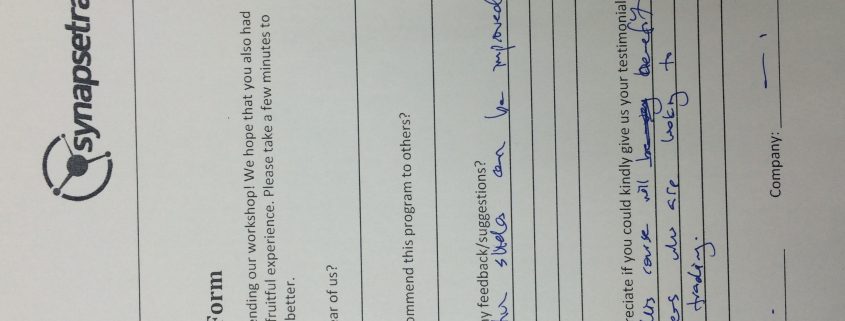 synapsetra
Form
nding our workshop! We hope that you also had
fruitful experience. Please take a few minutes to
better.
ar of us?
ommend this program to others?
y feedback/suggestions?
slides can be improved
reciate if you could kindly give us your testimonial
course will benefit
ers who are looking to
trading.
Company: